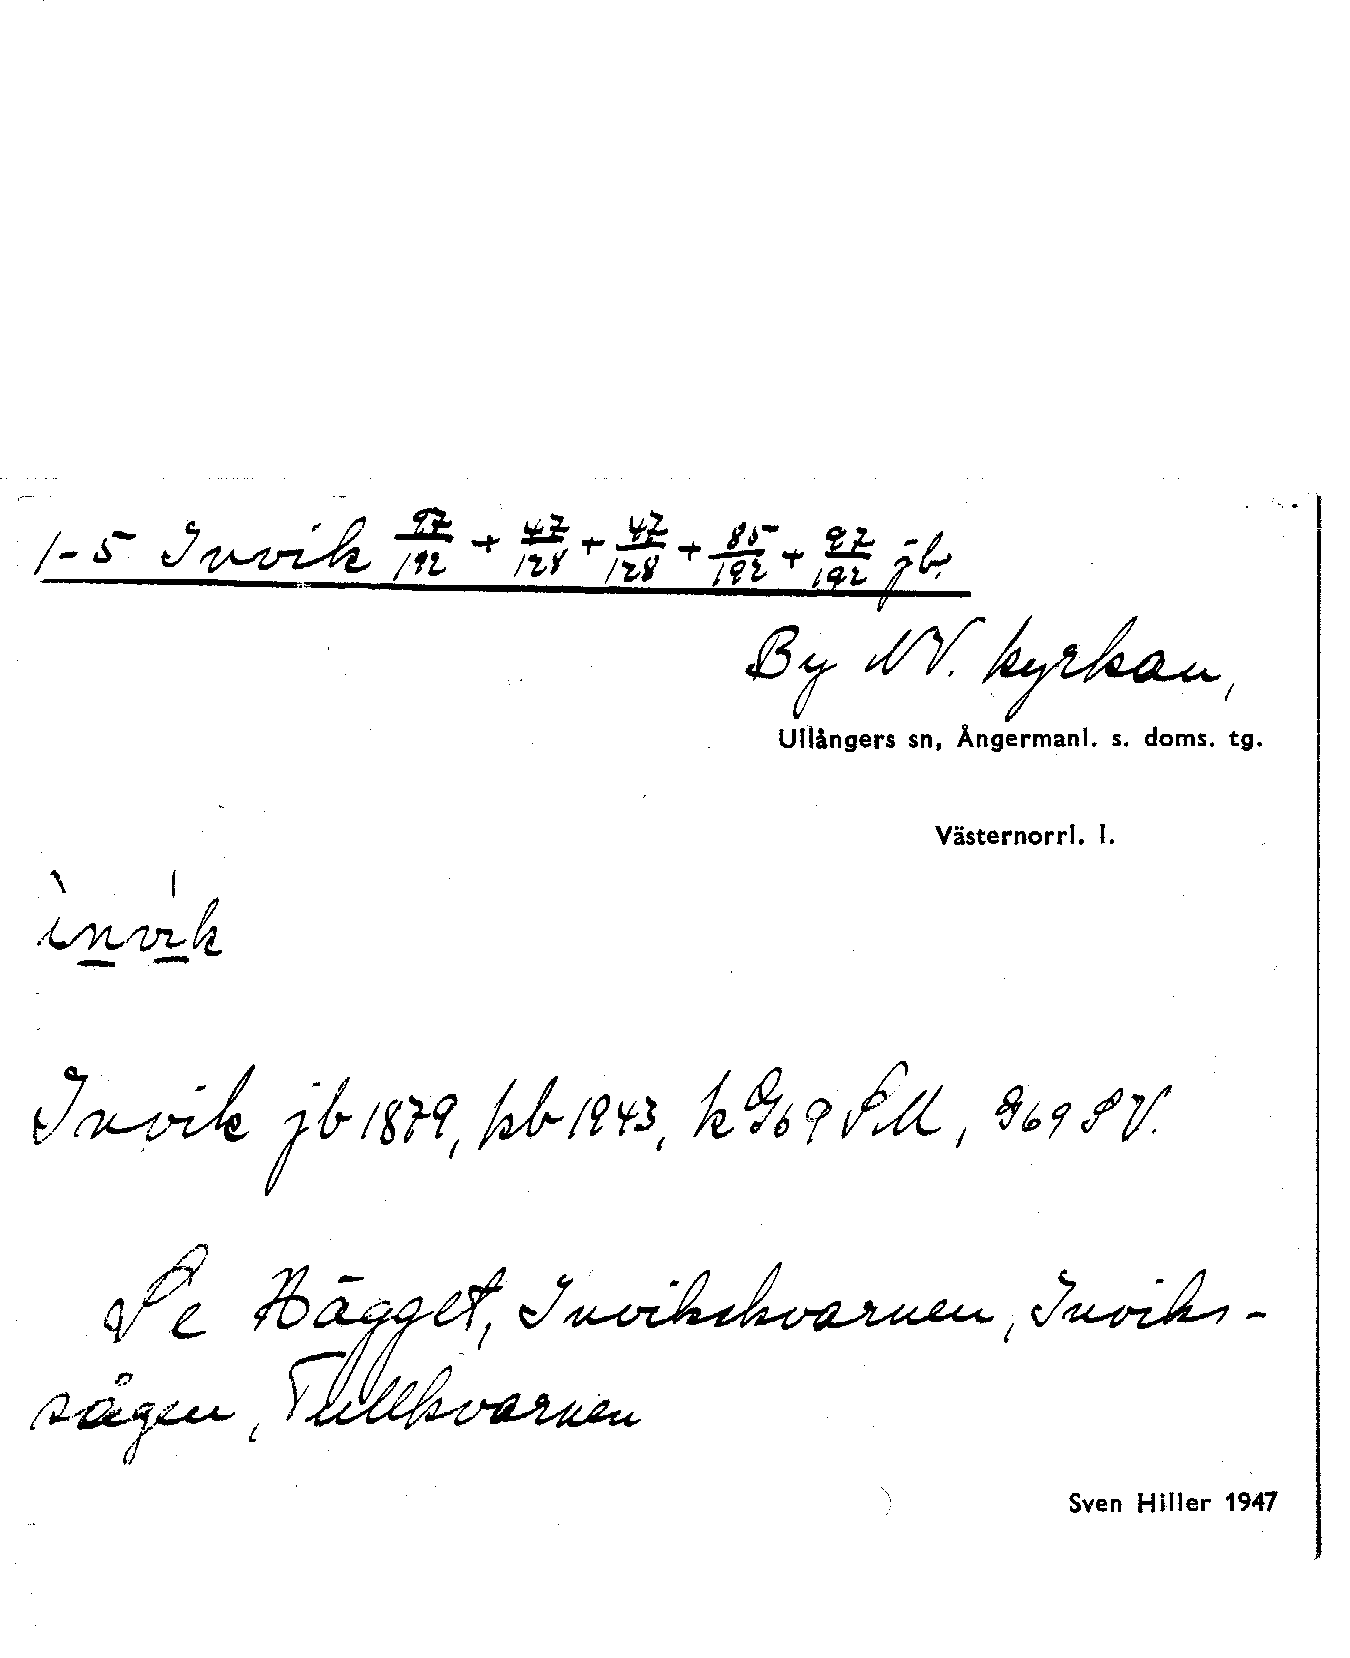 1-5 Invik 97/192 + 47/128 + 47/128 + 85/192 + 97/192 jb.
By NV. kyrkan,
Ullångers sn, Ångermanl. s. doms. tg.
Västernorrl. l.
ìnvík
Invik jb 1879, kb 1943, k G69 SM, G69 SV.
Se Hägget, Invikskvarnen, Inviks-
sågen, Tullkvarnen
Sven Hiller 1947